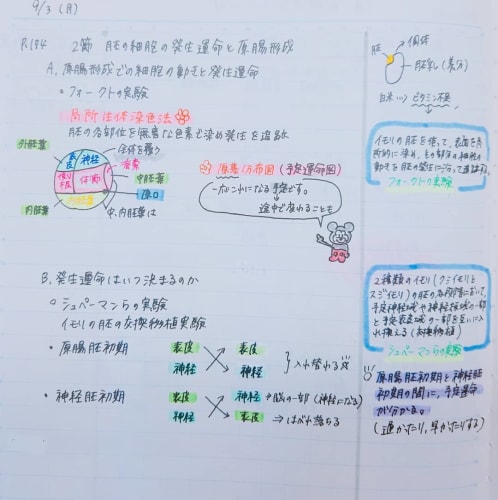 9/3 (月)
P.184 2節 胚の細胞の発生運命と原腸形成
A. 原腸形成での細胞の動きと発生運命
フォークトの実験
局所生体染色法
胚の各部位を無害な色素で染め発生を追跡
外胚葉
表皮
神経
全体を覆う
脊索
側板
体節
中胚葉
原口
内胚葉
中、内胚葉は
原基分布図(予定運命図)
一応これになる予定です。
途中で変わることも
B. 発生運命はいつ決まるのか
シュペーマンらの実験
イモリの胚の交換移植実験
・原腸胚初期 表皮 表皮
神経 神経
入れ替わる
・神経胚初期 表皮 神経 ⇒脳の一部(神経になる)
神経 表皮 ⇒はがれ落ちる
胚
個体
胚乳(養分)
白米 ビタミン不足
イモリの胚を使って、表面を局
所的に染め、その部分の細胞の
動きを胚の発生に沿って追跡する。
フォークトの実験
2種類のイモリ(クシイモリと
スジイモリ)の胚の各時期において、
予定神経域や神経板の一部
と予定表皮域の一部を互いに入
れ換える(交換移植)
シュペーマンらの実験
原腸胚初期と神経胚
初期の間に、予定運命
が分かる。
(遅かったり、早かったりする)